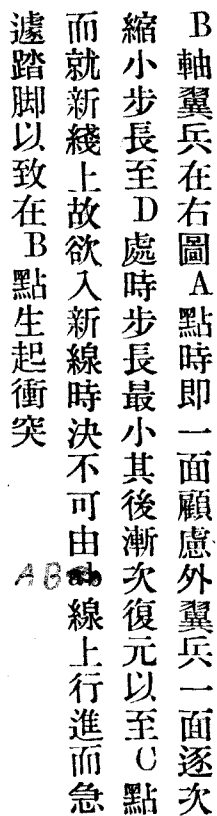 B軸翼兵在右圖A點時即一面顧慮外翼兵一面逐次
縮小步長至D處時步長最小其後漸次復元以至C點
而就新綫上故欲入新線時決不可由AB線上行進而急
遽踏脚以致在B點生起衝突